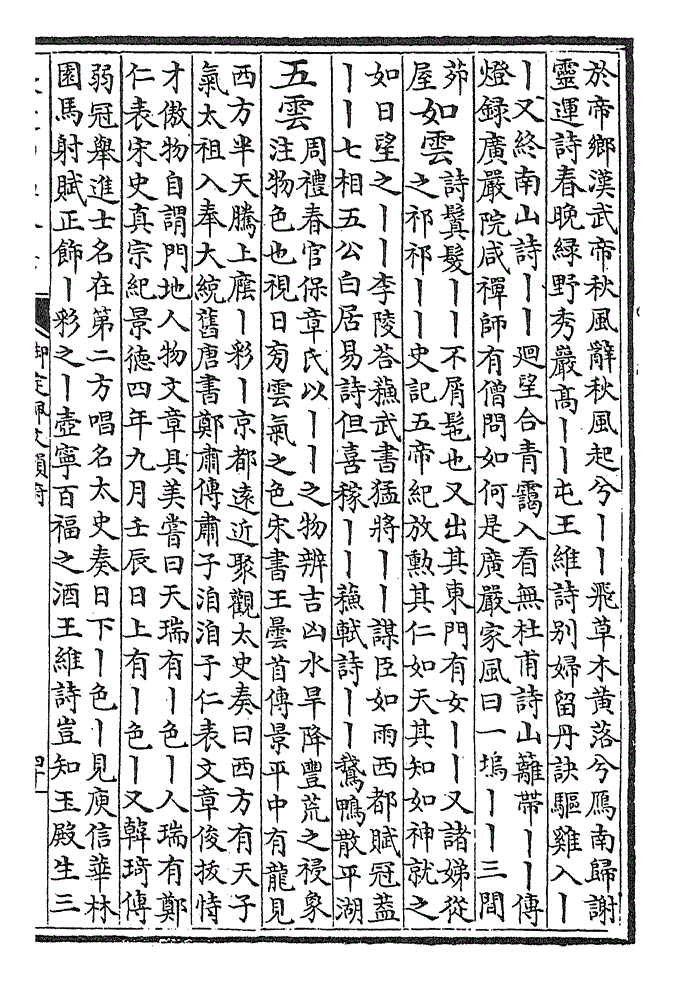 於帝鄉漢武帝秋風辭秋風起兮丨丨飛草木黄落兮鴈南歸謝
靈運詩春晚緑野秀巖高丨丨屯王維詩别婦留丹訣驅雞入丨
丨又終南山詩丨丨迴望合青靄入看無杜甫詩山籬帶丨丨傳
燈録廣嚴院咸禪師有僧問如何是廣嚴家風曰一塢丨丨三間
茆屋
如雲
詩鬒髮丨丨不屑髢也又出其東門有女丨丨又諸娣從之祁祁丨丨史記五帝紀放勳其仁如天其知如神就之
如日望之丨丨李陵荅蘓武書猛將丨丨謀臣如雨西都賦冠蓋
丨丨七相五公白居易詩但喜稼丨丨蘓軾詩丨丨鵞鴨散平湖
五雲
周禮春官保章氏以丨丨之物辨吉凶水旱降豐荒之祲象
注物色也視日旁雲氣之色宋書王曇首傳景平中有龍見
西方半天騰上廕丨彩丨京都遠近聚觀太史奏曰西方有天子
氣太祖入奉大統舊唐書鄭肅傳肅子洎洎子仁表文章俊拔恃
才傲物自謂門地人物文章具美嘗曰天瑞有丨色丨人瑞有鄭
仁表宋史真宗紀景德四年九月壬辰日上有丨色丨又韓琦傳
弱冠舉進士名在第二方唱名太史奏日下丨色丨見庾信華林
園馬射賦正飾丨彩之丨壺寧百福之酒王維詩豈知玉殿生三
御定佩文韻府